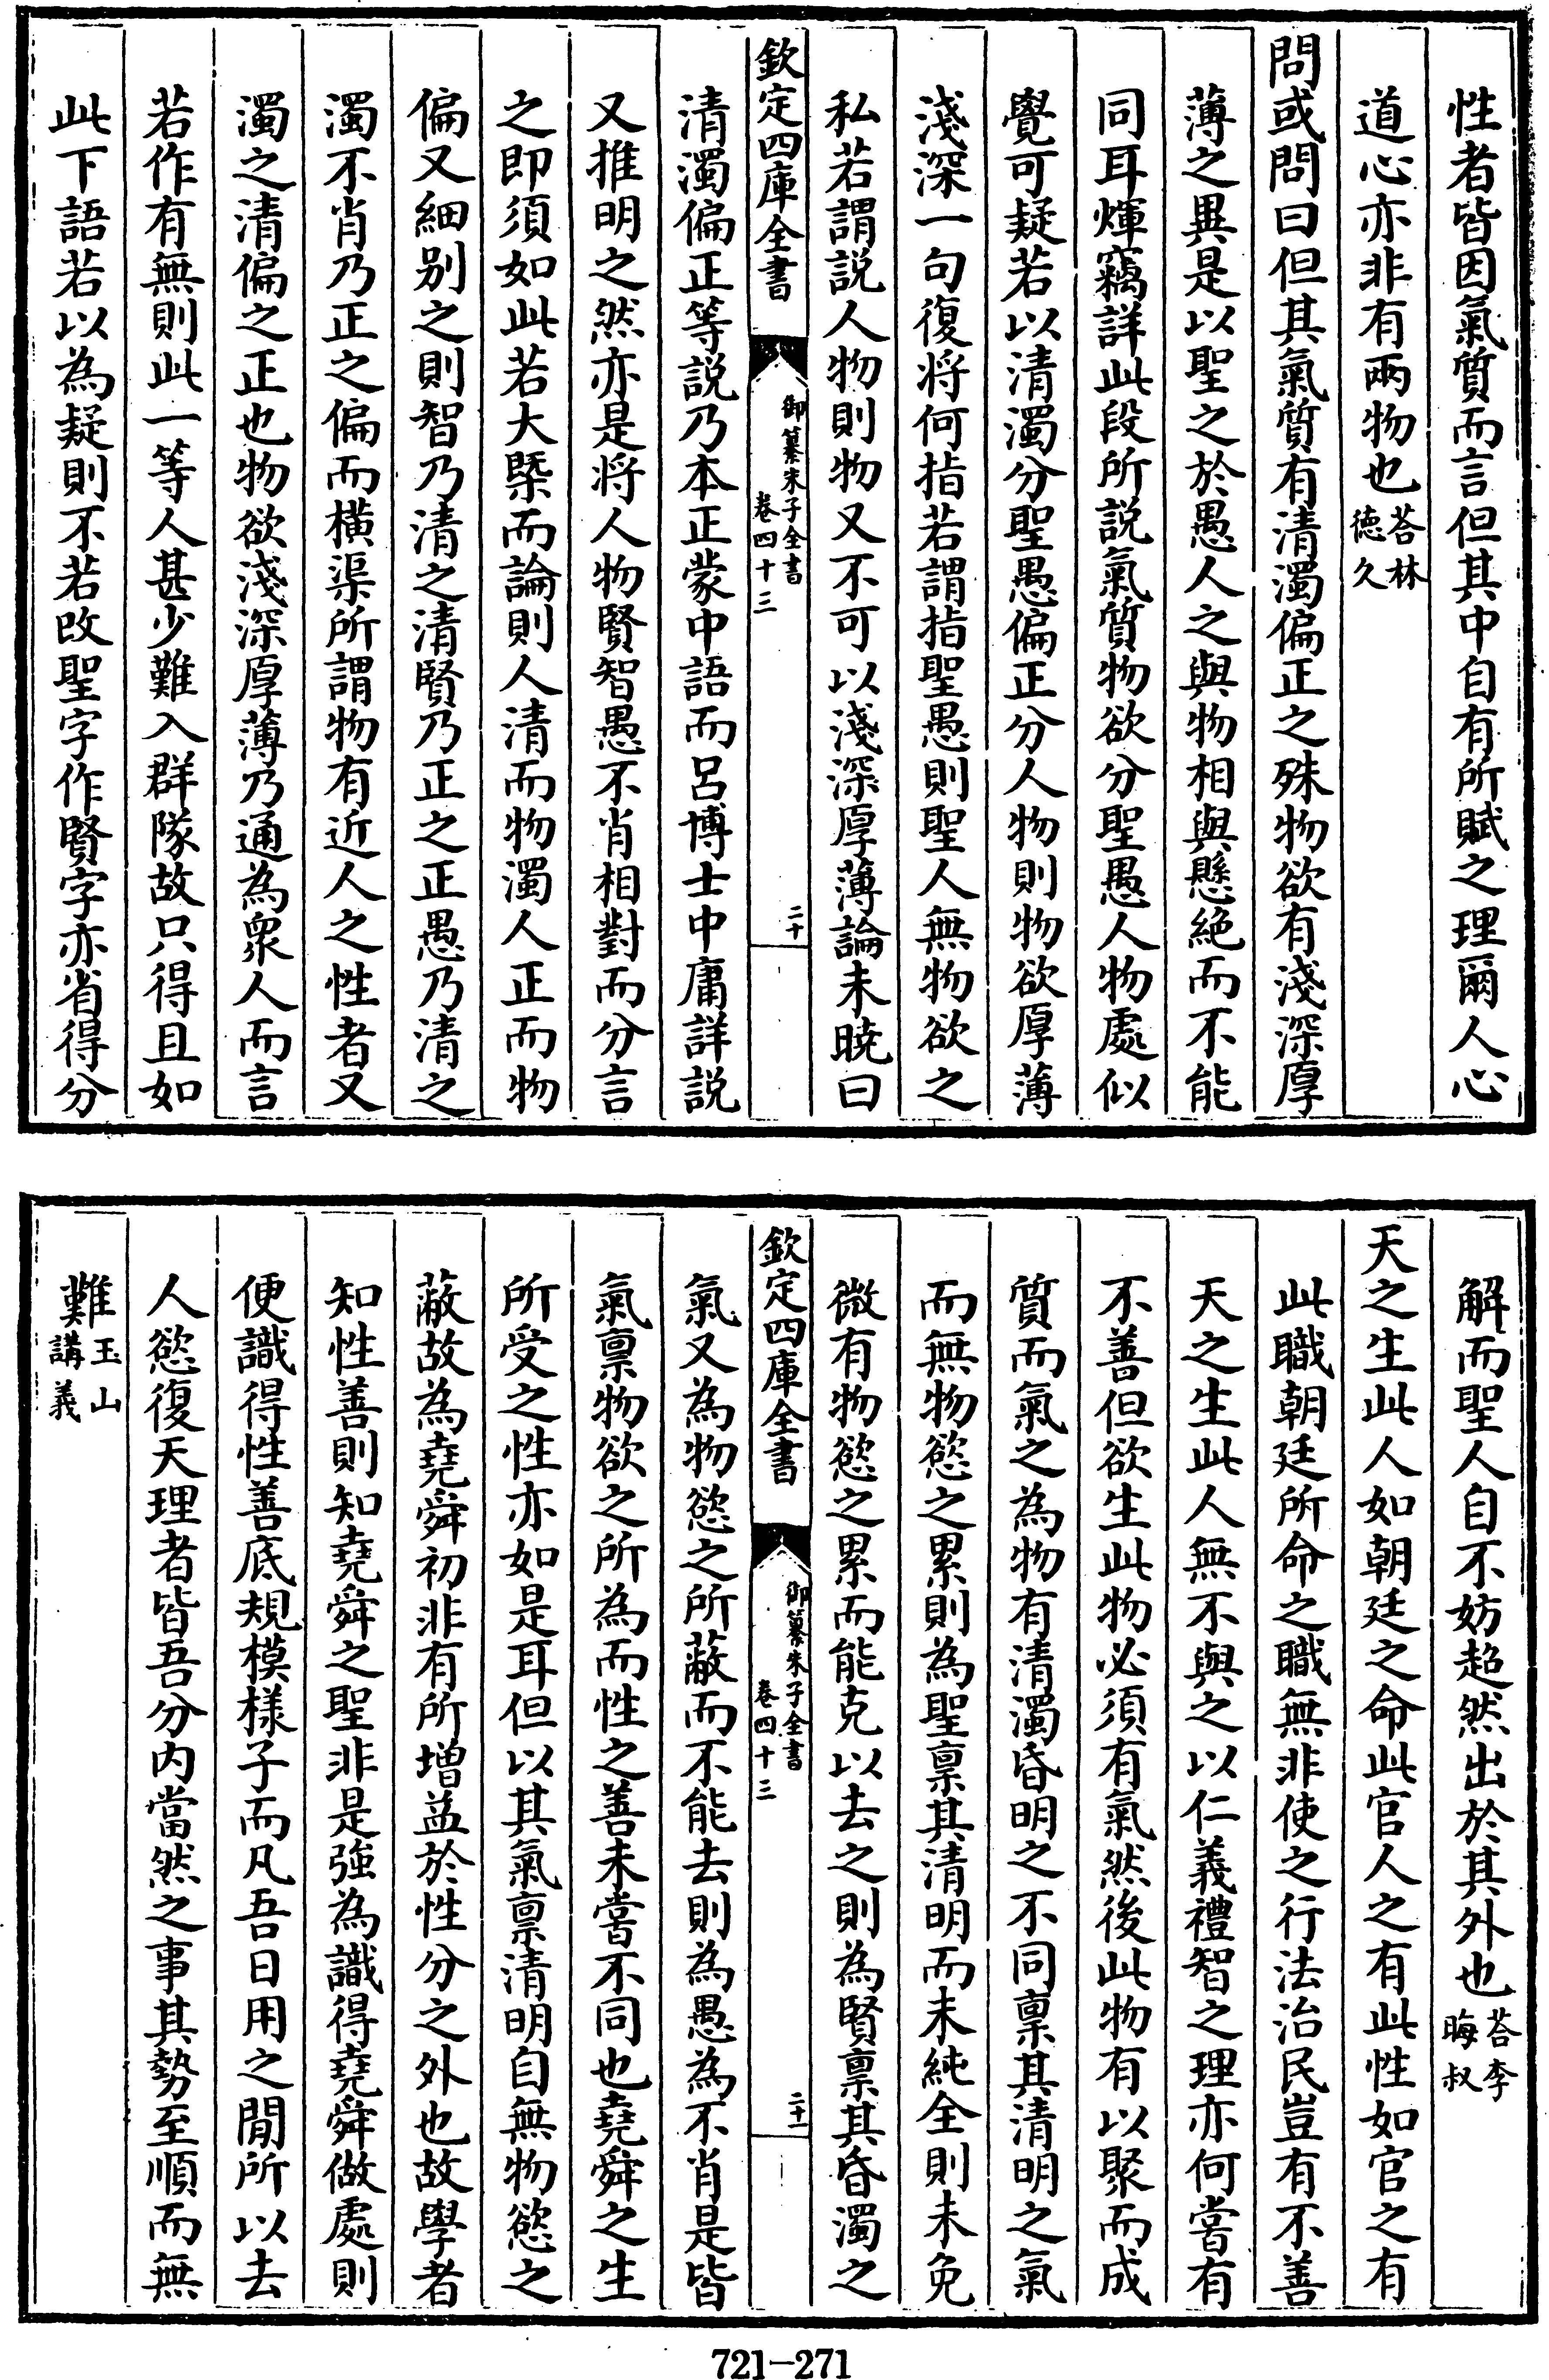 性者皆因氣質而言但其中自有所賦之理爾人心
道心亦非有兩物也荅林德久
問或問曰但其氣質有清濁偏正之殊物欲有淺深厚
薄之異是以聖之於愚人之與物相與懸絶而不能
同耳煇竊詳此段所説氣質物欲分聖愚人物處似
覺可疑若以清濁分聖愚偏正分人物則物欲厚薄
淺深一句復将何指若謂指聖愚則聖人無物欲之
私若謂説人物則物又不可以淺深厚薄論未曉曰
欽定四庫全書
御纂朱子全書
卷四十三
二十
清濁偏正等説乃本正蒙中語而呂博士中庸詳説
又推明之然亦是将人物賢智愚不肖相對而分言
之即須如此若大槩而論則人清而物濁人正而物
偏又細别之則智乃清之清賢乃正之正愚乃清之
濁不肖乃正之偏而横渠所謂物有近人之性者又
濁之清偏之正也物欲淺深厚薄乃通為衆人而言
若作有無則此一等人甚少難入群隊故只得且如
此下語若以為疑則不若改聖字作賢字亦省得分
解而聖人自不妨超然出於其外也荅李晦叔
天之生此人如朝廷之命此官人之有此性如官之有
此職朝廷所命之職無非使之行法治民豈有不善
天之生此人無不與之以仁義禮智之理亦何嘗有
不善但欲生此物必須有氣然後此物有以聚而成
質而氣之為物有清濁昏明之不同禀其清明之氣
而無物慾之累則為聖禀其清明而未純全則未免
微有物慾之累而能克以去之則為賢禀其昏濁之
欽定四庫全書
御纂朱子全書
卷四十三
二十一
氣又為物慾之所蔽而不能去則為愚為不肖是皆
氣禀物欲之所為而性之善未嘗不同也堯舜之生
所受之性亦如是耳但以其氣禀清明自無物慾之
蔽故為堯舜初非有所增益於性分之外也故學者
知性善則知堯舜之聖非是強為識得堯舜做處則
便識得性善底規模様子而凡吾日用之間所以去
人慾復天理者皆吾分内當然之事其勢至順而無
難玉山講義
721-271